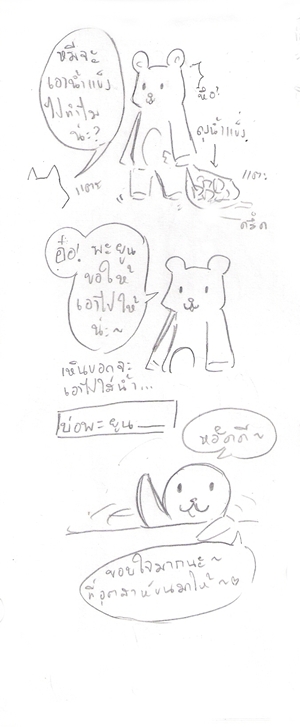 หมีจะ
เอาน้ำแข็ง
ไปทำไม
น่ะ?
หือ?
ถุงน้ำแข็ง
แตะ
แตะ
ครืด
อื๋อ! พะยูน
ขอให้
เอาไปให้
น่ะ~
เห็นบอกจะ
เอาไปใส่น้ำ...
บ่อพะยูน
หวัดดี~
ขอบใจมากนะ~
ที่อุตส่าห์ขนมาให้~